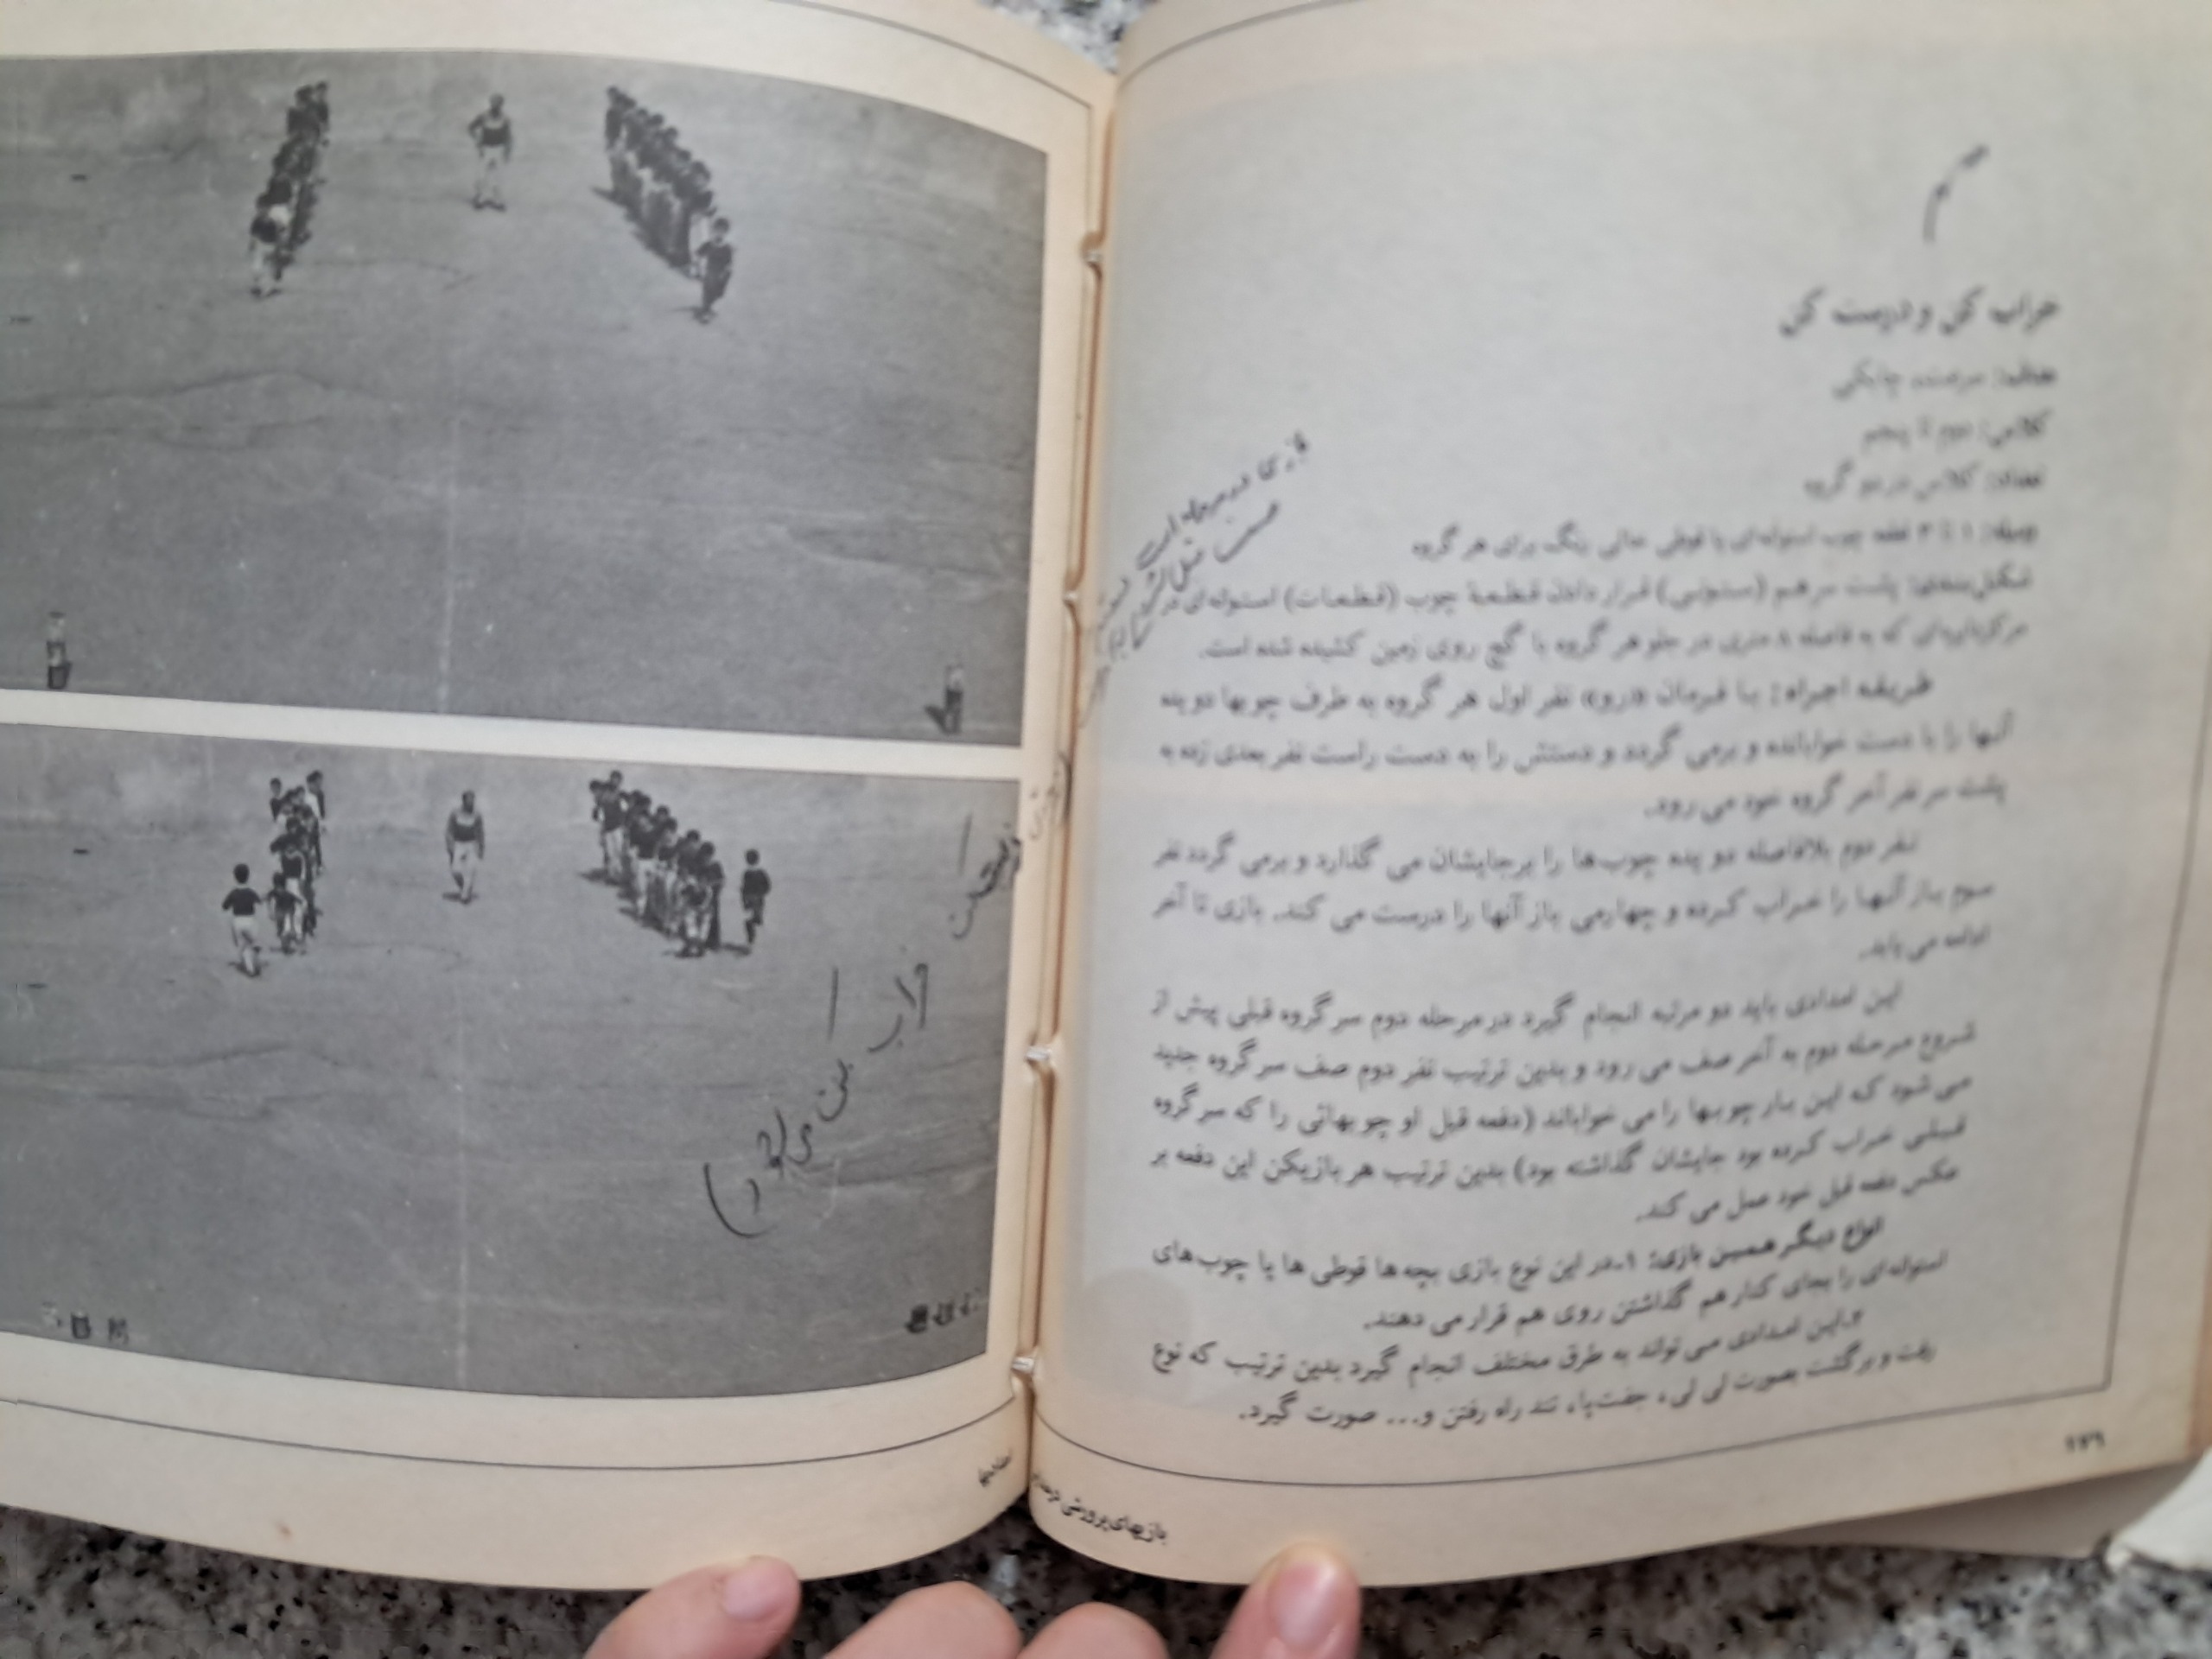 خراب کن و درست کن
هدف: سرعت، چابکی
کلاس: دوم تا پنجم
تعداد: کلاس در دو گروه
وسیله: ۱ تا ۳ قطعه چوب استوانه‌ای یا قوطی خالی رنگ برای هر گروه
شکل‌بندی: پشت سر هم (ستونی) قرار دادن قطعهٔ چوب (قطعات) استوانه‌ای در
مرکز دایره‌ای که به فاصله ۸ متری در جلو هر گروه با گچ روی زمین کشیده شده است.
طریقه اجراء: با فرمان «رو» نفر اول هر گروه به طرف چوبها دویده
آنها را با دست خوابانده و برمی گردد و دستش را به دست راست نفر بعدی زده به
پشت سر نفر آخر گروه خود می رود.
نفر دوم بلافاصله دویده چوب‌ها را برجایشان می گذارد و برمی گردد نفر
سوم باز آنها را خراب کرده و چهارمی باز آنها را درست می کند. بازی تا آخر
ادامه می یابد.
این امدادی باید دو مرتبه انجام گیرد در مرحله دوم سر گروه قبلی پیش از
شروع مرحله دوم به آخر صف می رود و بدین ترتیب نفر دوم صف سر گروه جدید
می شود که این بار چوبها را می خواباند (دفعه قبل او چوبهائی را که سر گروه
قبلی خراب کرده بود جایشان گذاشته بود) بدین ترتیب هر بازیکن این دفعه بر
عکس دفعه قبل خود عمل می کند.
انواع دیگر همین بازی: ۱ـ در این نوع بازی بچه‌ها قوطی ها یا چوب‌های
استوانه‌ای را بجای کنار هم گذاشتن روی هم قرار می دهند.
۲ـ این امدادی می تواند به طرق مختلف انجام گیرد بدین ترتیب که نوع
رفت و برگشت بصورت لی لی، جفت‌پا، تند راه رفتن و... صورت گیرد.
بازیهای پرورشی